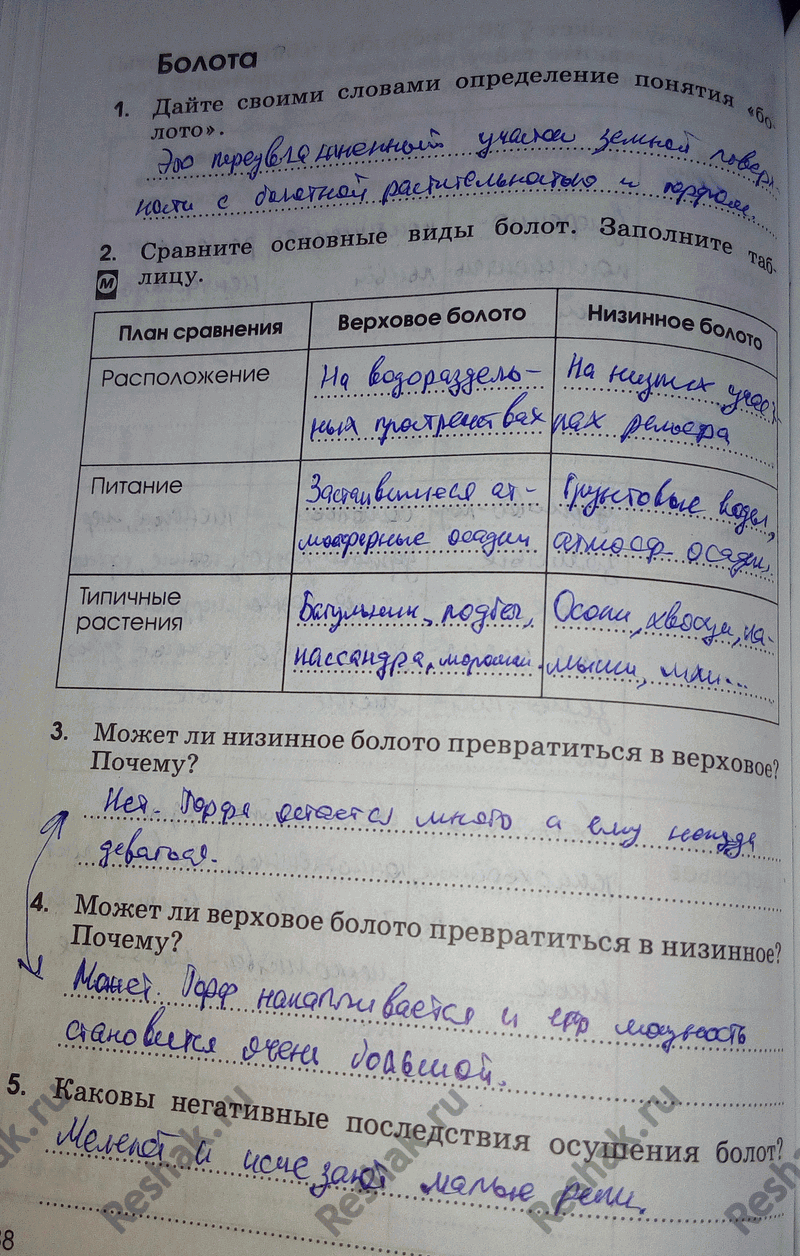 Болота
1. Дайте своими словами определение понятия «бо-
лото».
Это переувлажненный участок земной поверх
ности с болотной растительностью и торфом.
2. Сравните основные виды болот. Заполните таб-
М лицу.
План сравнения Верховое болото Низинное болото
Расположение На водораздель- На низких участ
ных пространствах ках рельефа
Питание Застоявшиеся ат- Грунтовые воды,
мосферные осадки атмосф осадки,
Типичные Багульник, подбел, Осоки, хвощи, ка-
растения кассандра, морошка. мыши, мхи...
3. Может ли низинное болото превратиться в верховое?
Почему?
Нет. Торфа остается много а ему некуда
деваться.
4. Может ли верховое болото превратиться в низинное?
Почему?
Может. Торф накапливается и его мощность
становится очень большой.
5. Каковы негативные последствия осушения болот?
Мелеют и исчезают малые реки.
8
Reshak.ru
Reshak.ru
Reshak.ru